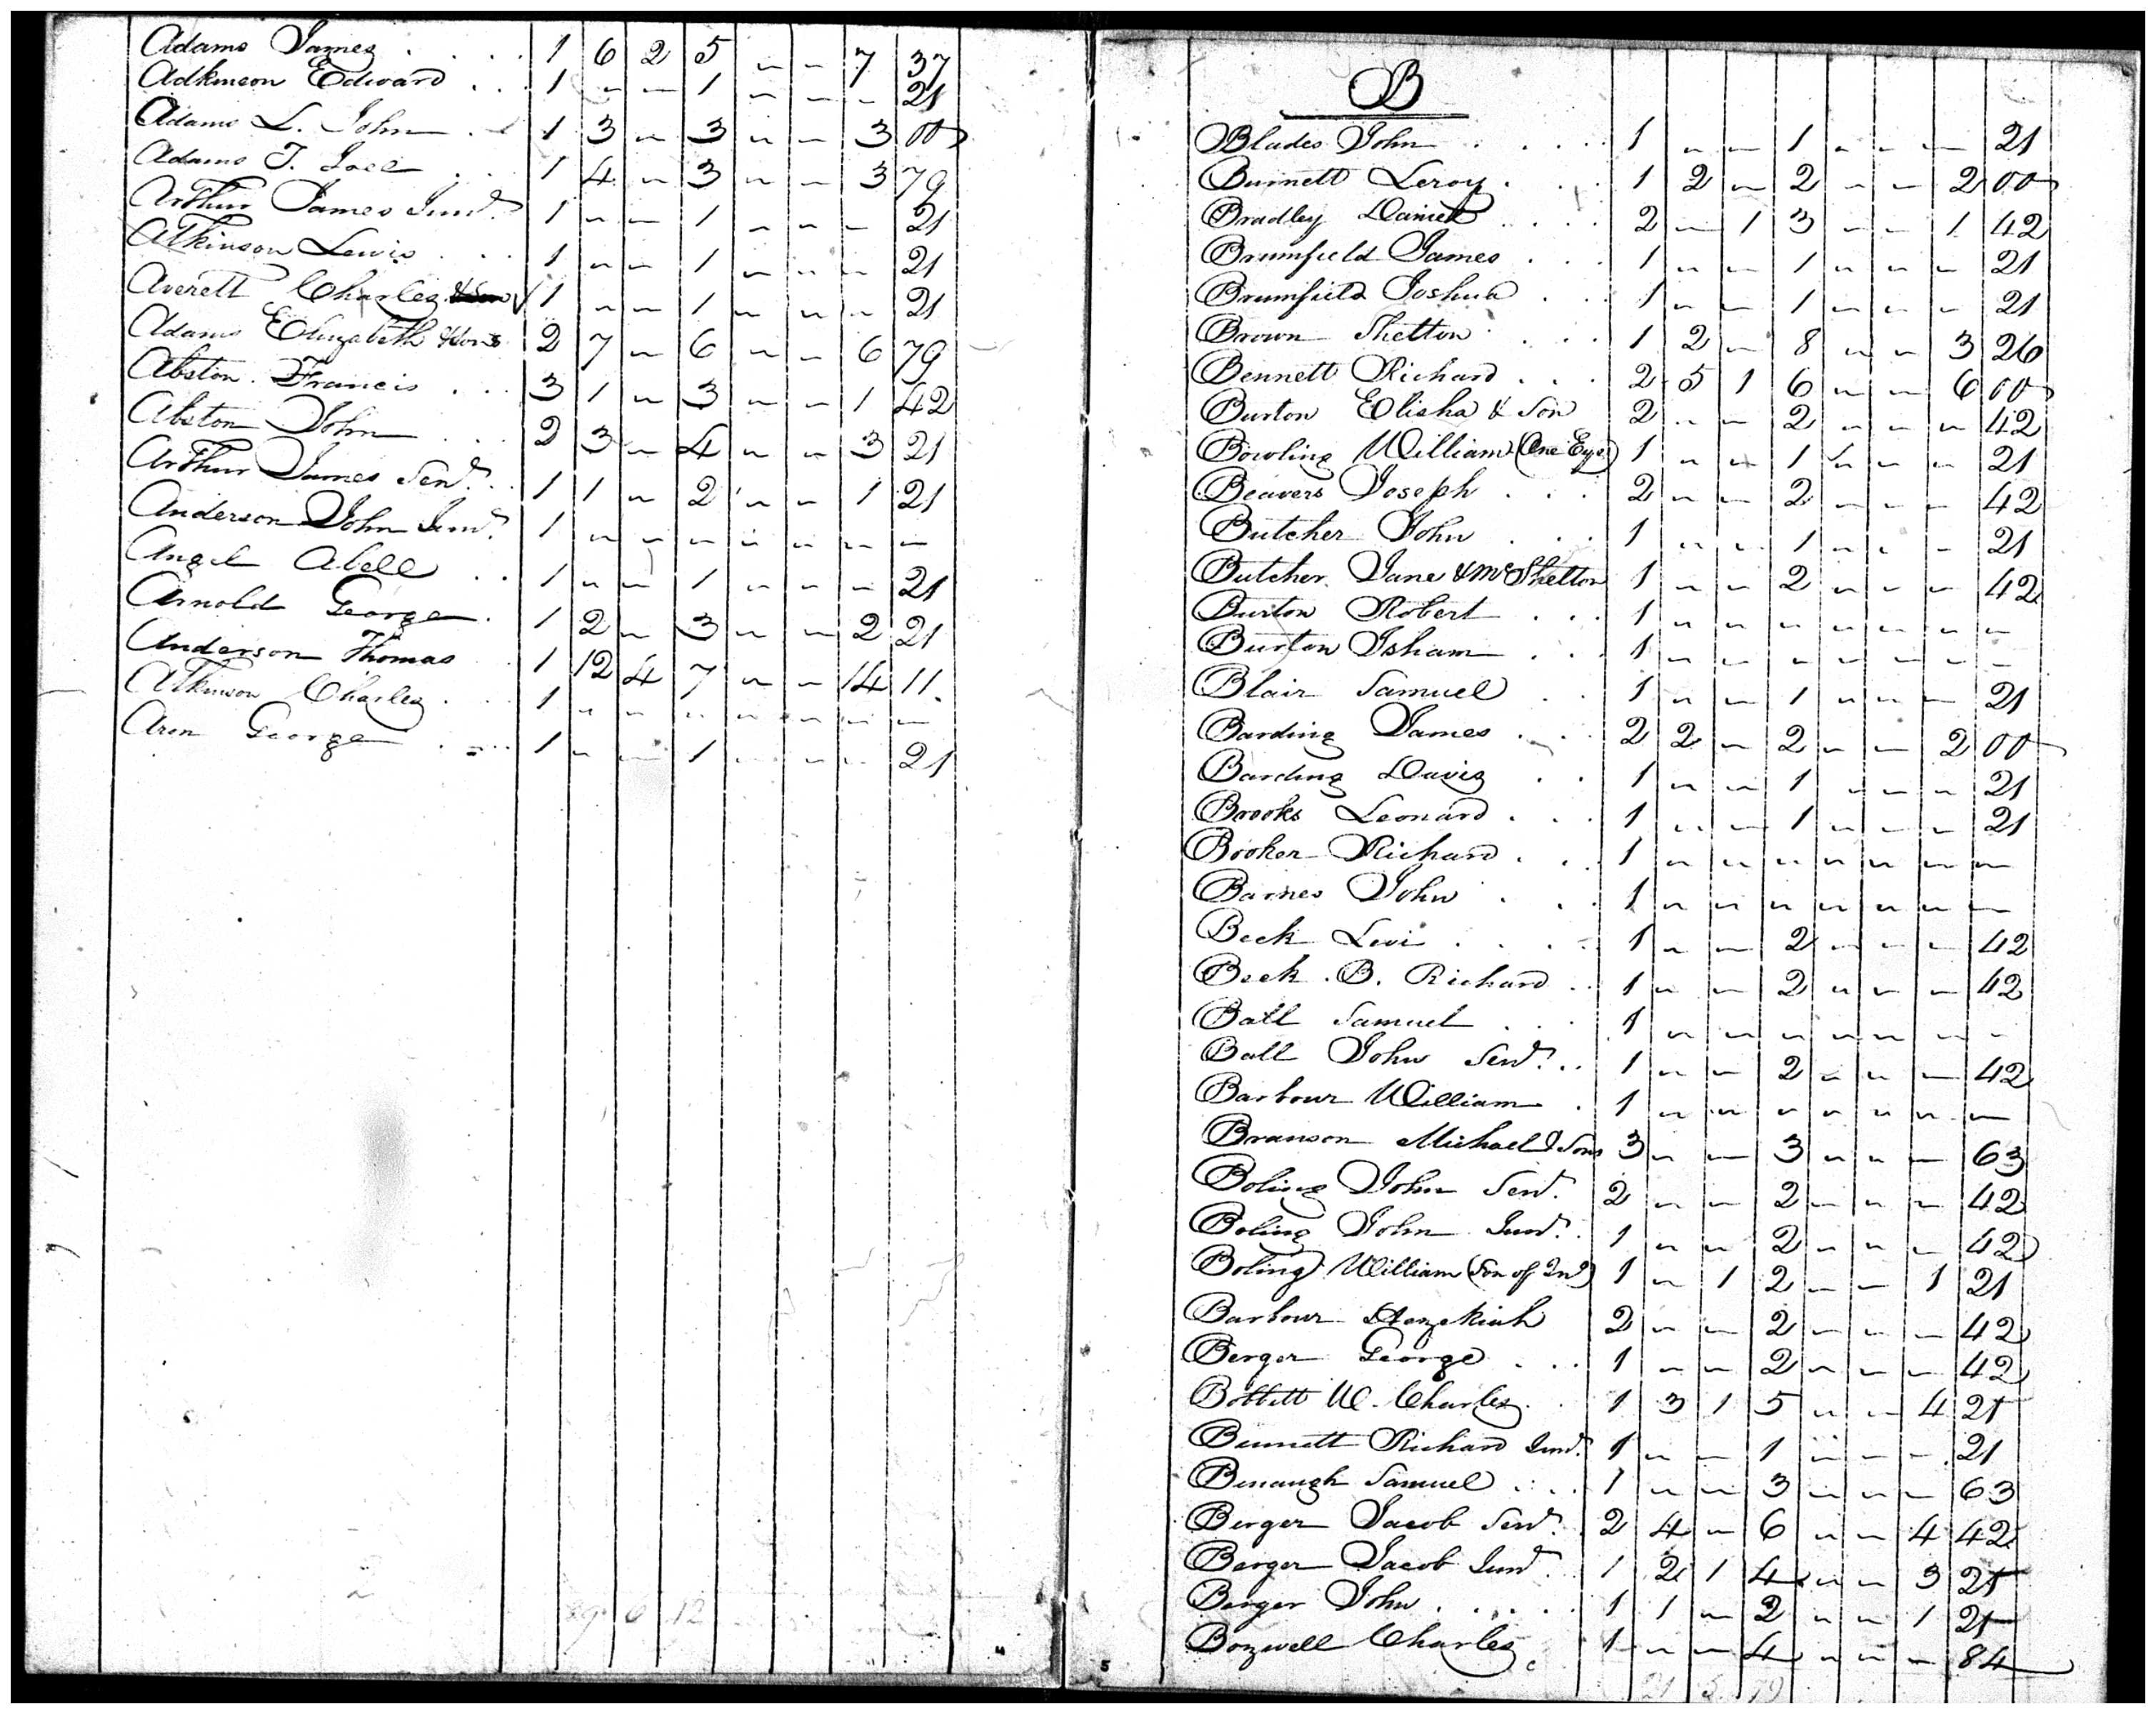 Adams James . . . . 1 6 2 5 " " 7 37
Adkinson Edward . . . 1 " " 1 " " " 21
Adams L. John . . 1 3 " 3 " " 3 00
Adams T. Joel . . 1 4 " 3 " " 3 79
Arthur James Junr. 1 " " 1 " " " 21
Atkinson Lewis . . . 1 " " 1 " " " 21
Averett Charles 1 " " 1 " " " 21
Adams Elizabeth & sons 2 7 " 6 " " 6 79
Abston Francis . . . 3 1 " 3 " " 1 42
Abston John . . . 2 3 " 4 " " 3 21
Arthur James Senr. . 1 1 " 2 " " 1 21
Anderson John Junr. 1 " " " " " " "
Angel Abell . . 1 " " 1 " " " 21
Arnold George . 1 2 " 3 " " 2 21
Anderson Thomas . 1 12 4 7 " " 14 11.
Atkinson Charles . . . 1 " " " " " " "
Aron George . . . 1 " " 1 " " " 21
4
B
Blades John . . . . 1 " " 1 " " " 21
Burnett Leroy . . . 1 2 " 2 " " 2 00
Bradley Daniel . . . . 2 " 1 3 " " 1 42
Brumfield James . . . 1 " " 1 " " " 21
Brumfield Joshua . . 1 " " 1 " " " 21
Brown Shelton . . . 1 2 " 8 " " 3 26
Bennett Richard . . . 2 5 1 6 " " 6 00
Burton Elisha & Son 2 " " 2 " " " 42
Bowling William (One Eye) 1 " " 1 " " " 21
Beavers Joseph . . . 2 " " 2 " " " 42
Butcher John . . . 1 " " 1 " " " 21
Butcher Jane & Mc Shelton 1 " " 2 " " " 42
Burton Robert . . . 1 " " " " " " "
Burton Isham . . . 1 " " " " " " "
Blair Samuel . . 1 " " 1 " " " 21
Barding James . . . 2 2 " 2 " " 2 00
Barding Davis . . 1 " " 1 " " " 21
Brooks Leonard . . . 1 " " 1 " " " 21
Booker Richard . . . 1 " " " " " " "
Barnes John . . . 1 " " " " " " "
Beck Levi . . . . 1 " " 2 " " " 42
Beck . B. Richard . . 1 " " 2 " " " 42
Ball Samuel . . . 1 " " " " " " "
Ball John Senr. . . 1 " " 2 " " " 42
Barbour William . 1 " " " " " " "
Branson Michael & Sons 3 " " 3 " " " 63
Boling John Senr. 2 " " 2 " " " 42
Boling John Junr. . 1 " " 2 " " " 42
Boling William (Son of Jno) 1 " 1 2 " " 1 21
Barbour Hezekiah 2 " " 2 " " " 42
Berger George . . . 1 " " 2 " " " 42
Bobbitt W. Charles . 1 3 1 5 " " 4 21
Bennett Richard Junr. 1 " " 1 " " " 21
Benaugh Samuel . . . 1 " " 3 " " " 63
Berger Jacob Senr. . 2 4 " 6 " " 4 42
Berger Jacob Junr. . 1 2 1 4 " " 3 21
Berger John . . . . . 1 1 " 2 " " 1 21
Bozwell Charles 1 " " 4 " " " 84
5